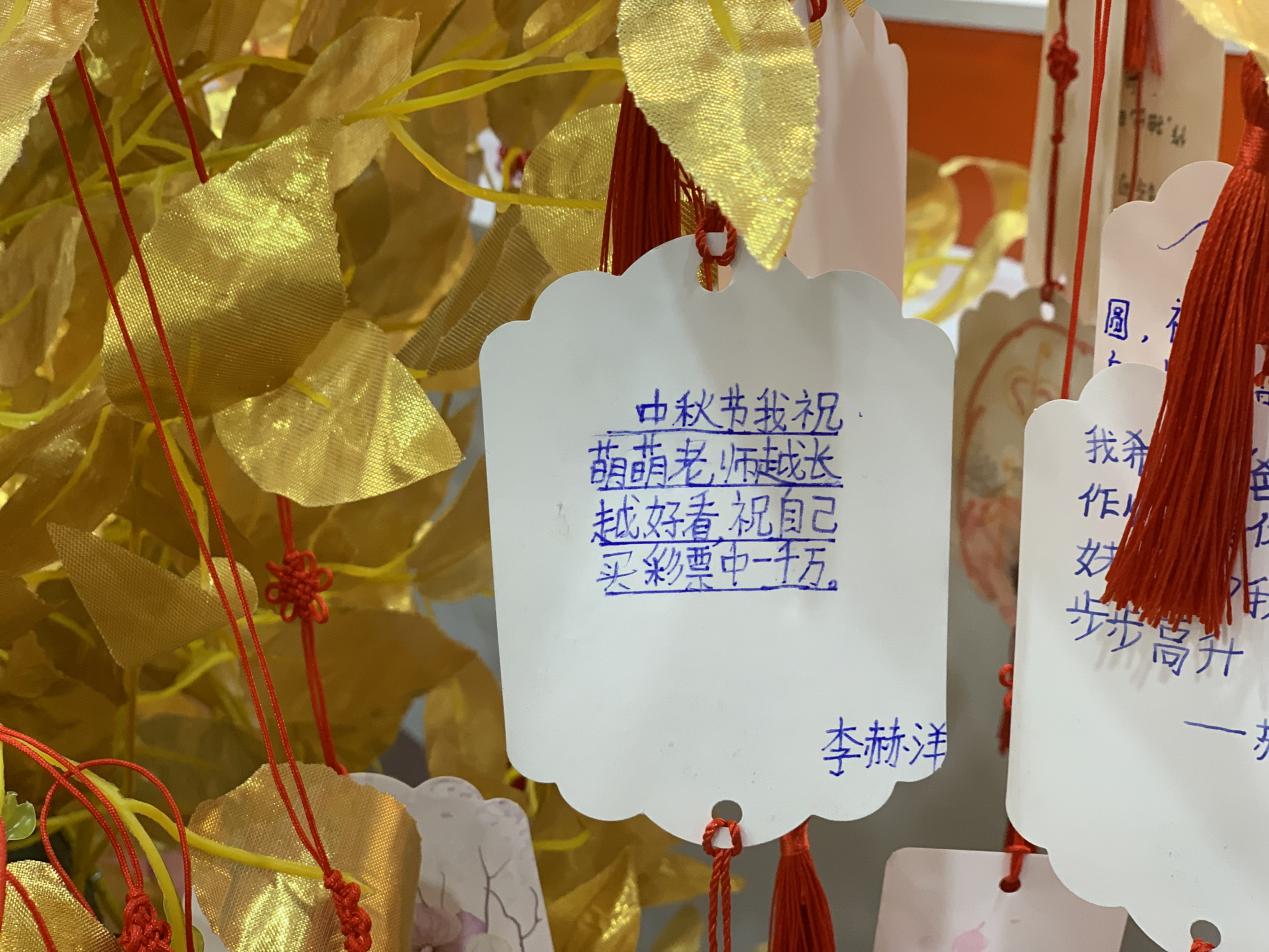 中秋节我祝
萌萌老师越长
越好看,祝自己
买彩票中一千万。
李赫洋
圆,
我希
作
步步高升
一